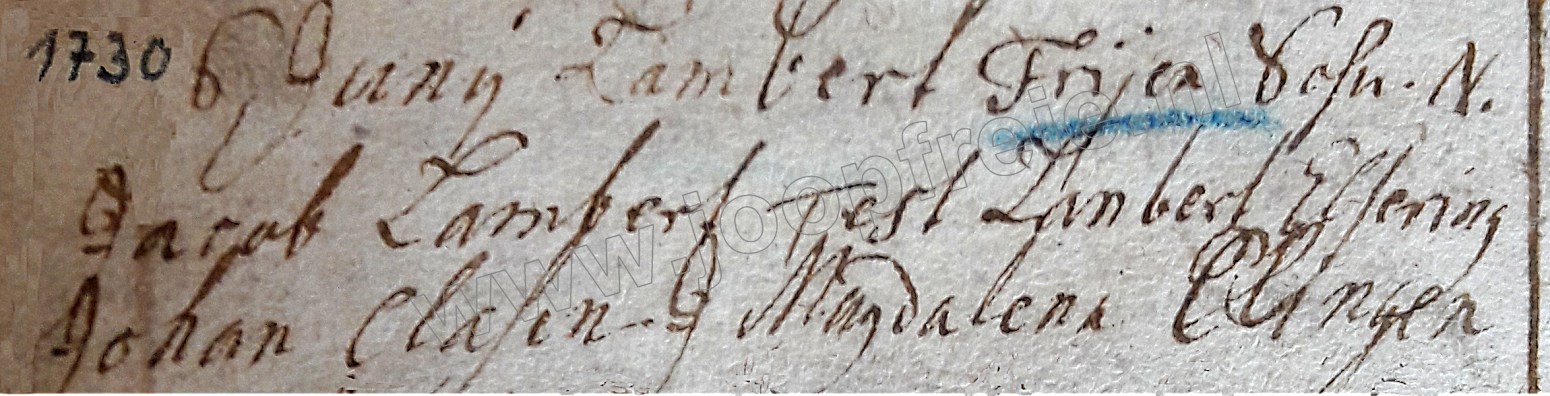 1730 6 Juny Lambert Frijea Sohn. N.
Jacob Lambert Test Lambert Essering
Johan Clasen. J Magdalena Elbingen
www.joopfreic.nl